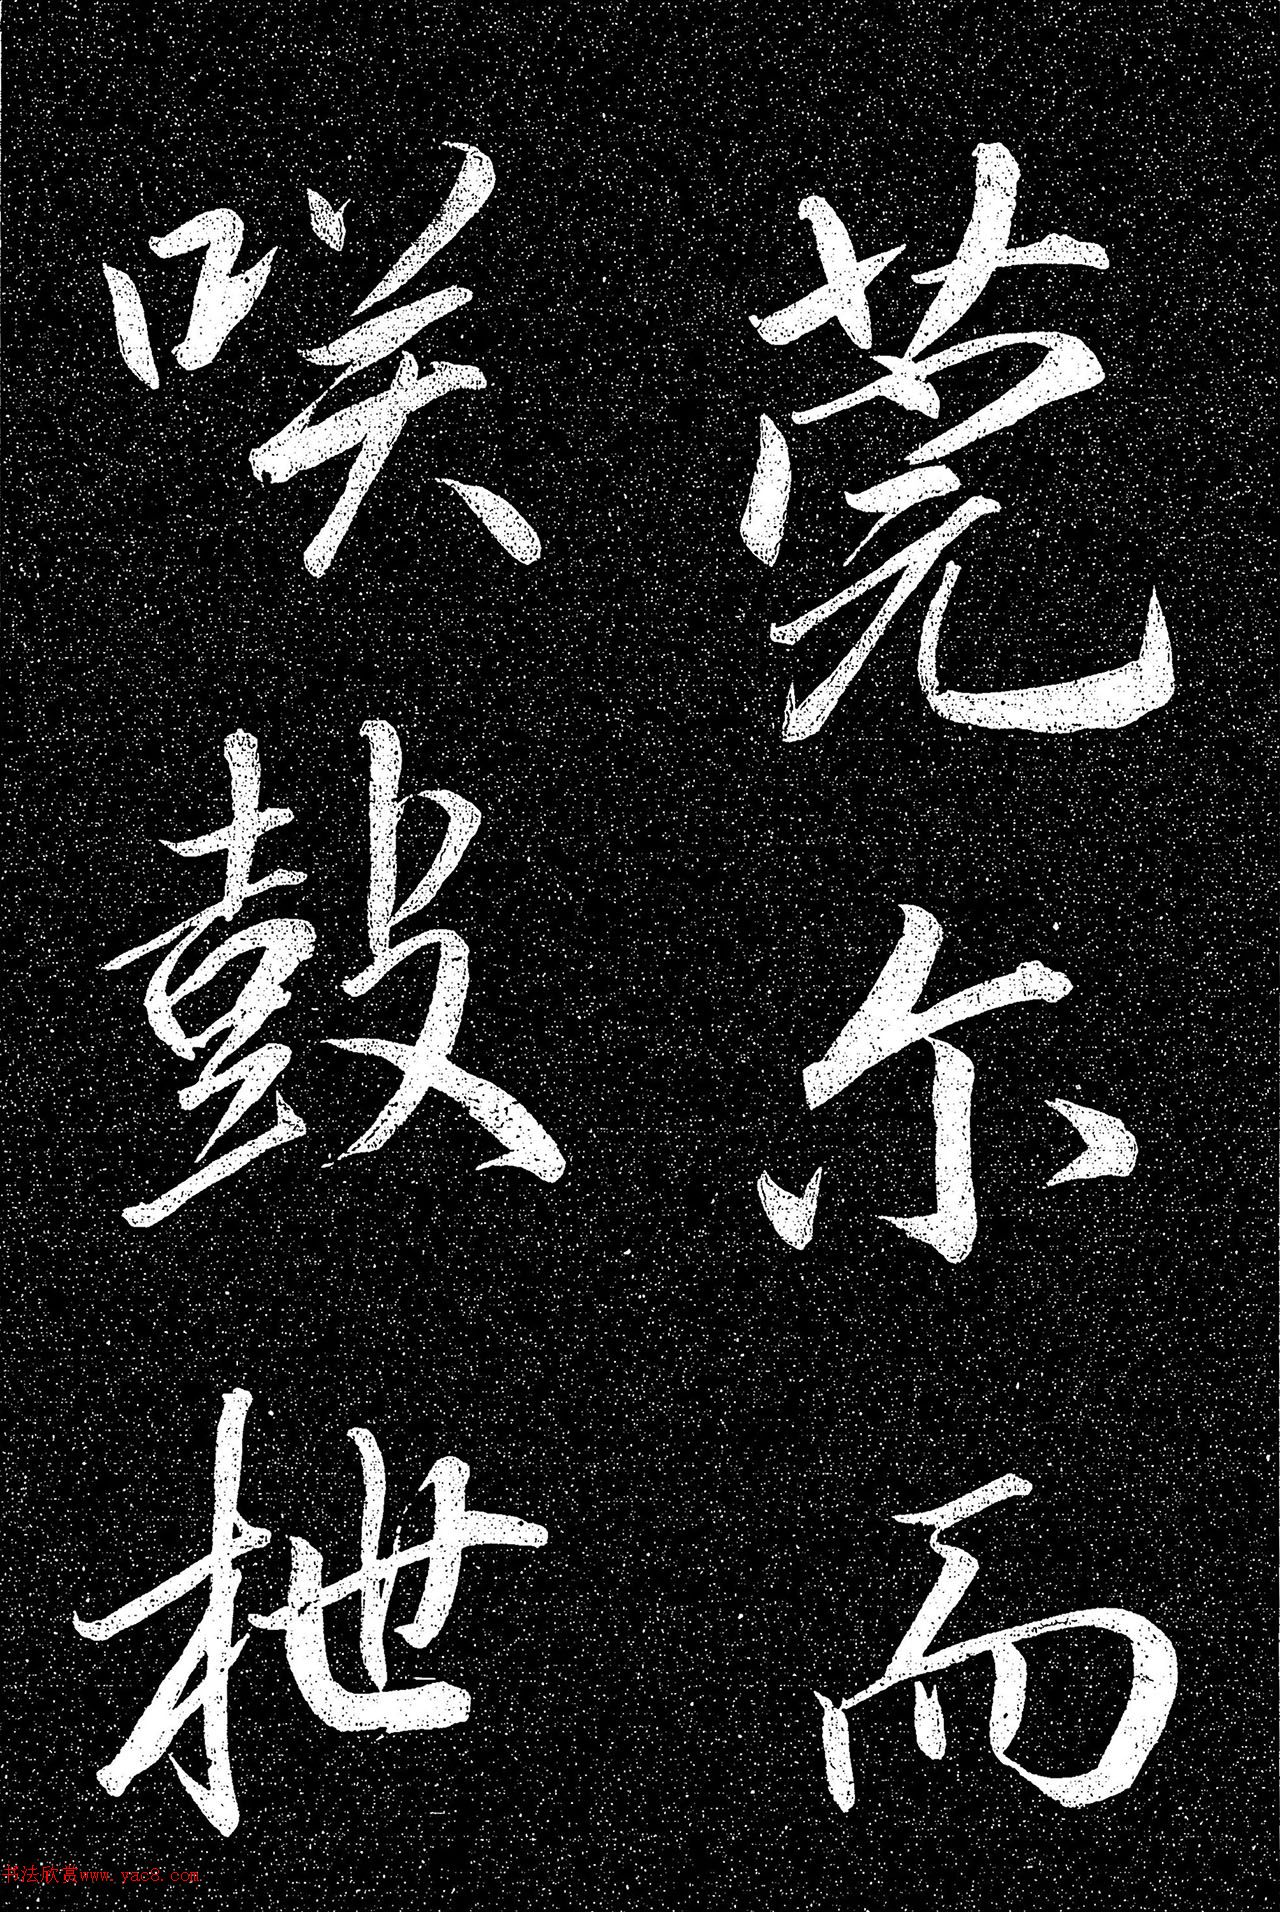 莞尔而
咲鼓枻
书法欣赏www.yac8.com